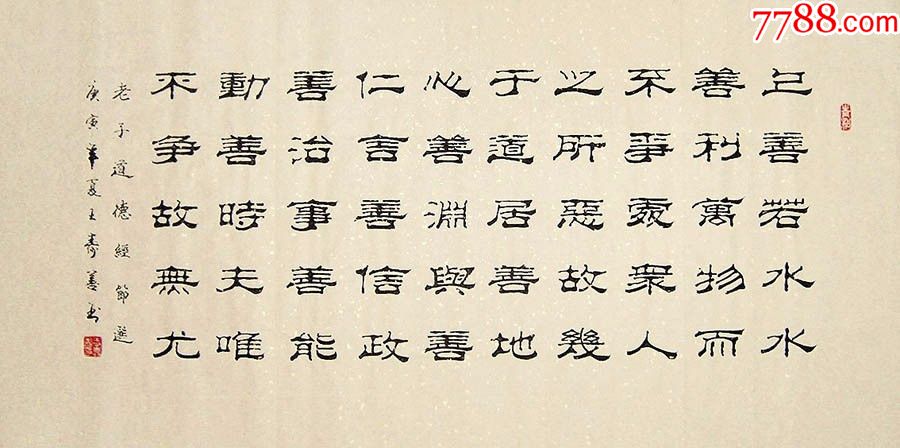 7788.com
上善若水水
善利萬物而
不爭處衆人
之所惡故幾
于道居善地
心善淵與善
仁言善信政
善治事善能
動善時夫唯
不争故無尤
老子道德經節選
庚寅年夏王寿善书